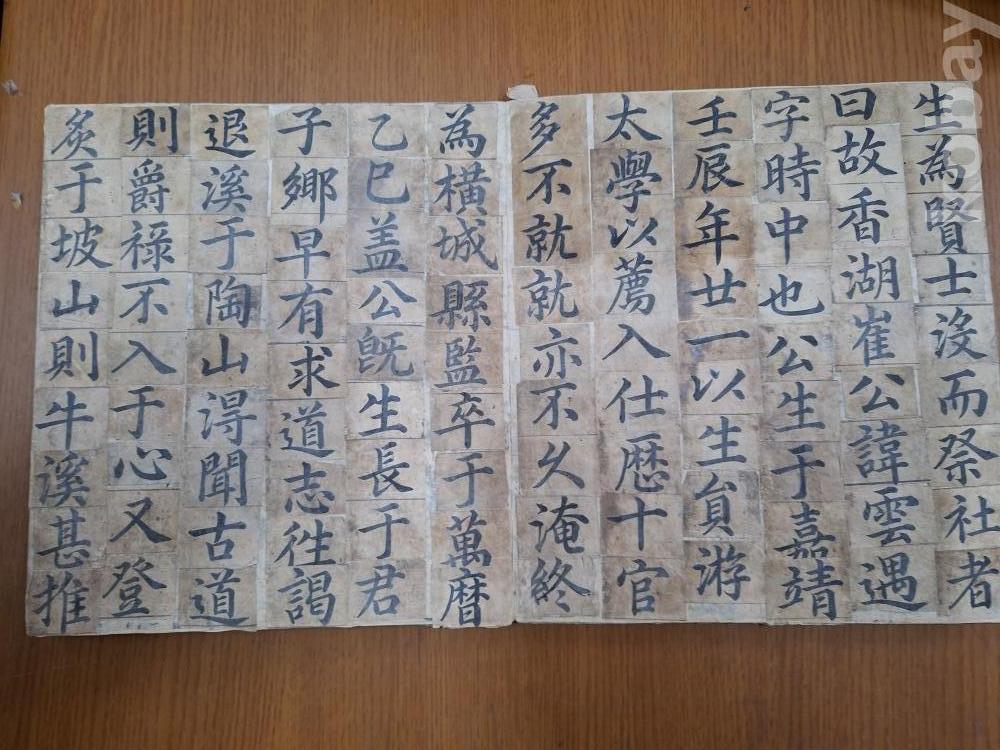 生為賢士沒而祭社者
曰故香湖崔公諱雲遇
字時中也公生于嘉靖
壬辰年廿一以生貟游
太學以薦入仕厯十官
多不就就亦不久淹終
為橫城縣監卒于萬暦
乙巳盖公旣生長于君
子鄉早有求道志徃謁
退溪于陶山淂聞古道
則爵祿不入于心又登
炙于坡山則牛溪甚推
Kobay